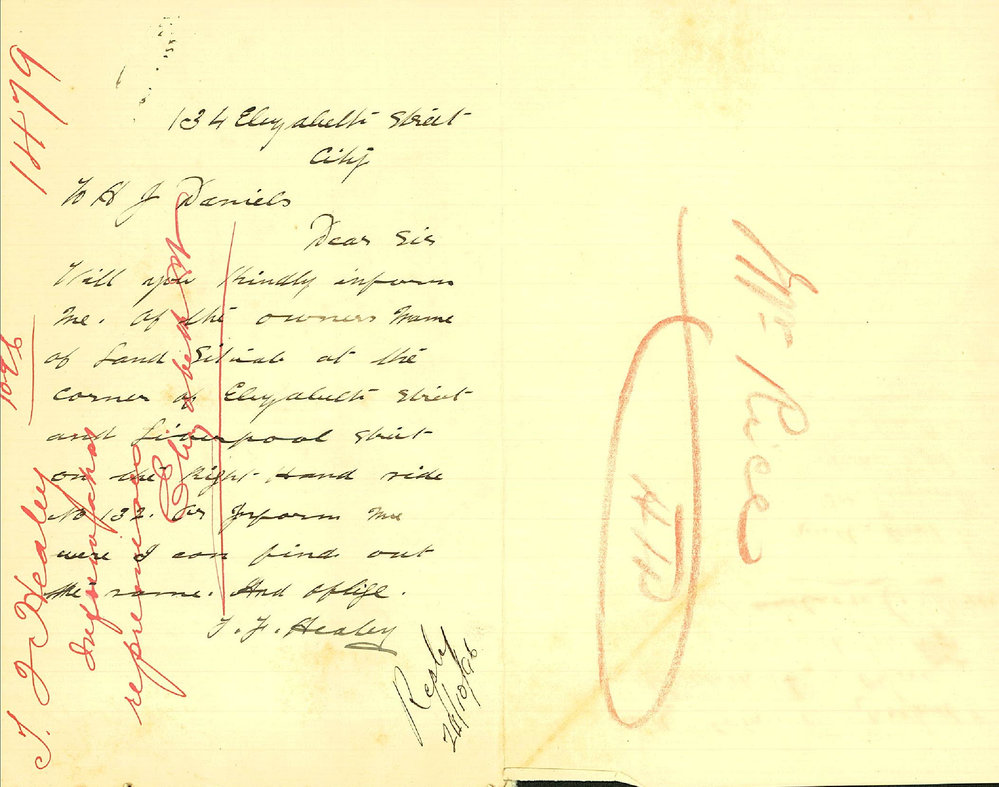 134 Elizabeth Street
City
To H J Daniels
Dear Sir
Will you kindly inform
me. Of the owners Name
of Land Situate at the
corner of Elizabeth Street
and Liverpool Street
on the Right Hand side
No 132. Or Inform Me
were I can find out
the name. And oblige.
T. J. Healey
Reply
26/10/96
1479
1096
T. J Healey
Information
re premises
Elizabeth St
Mr Rice